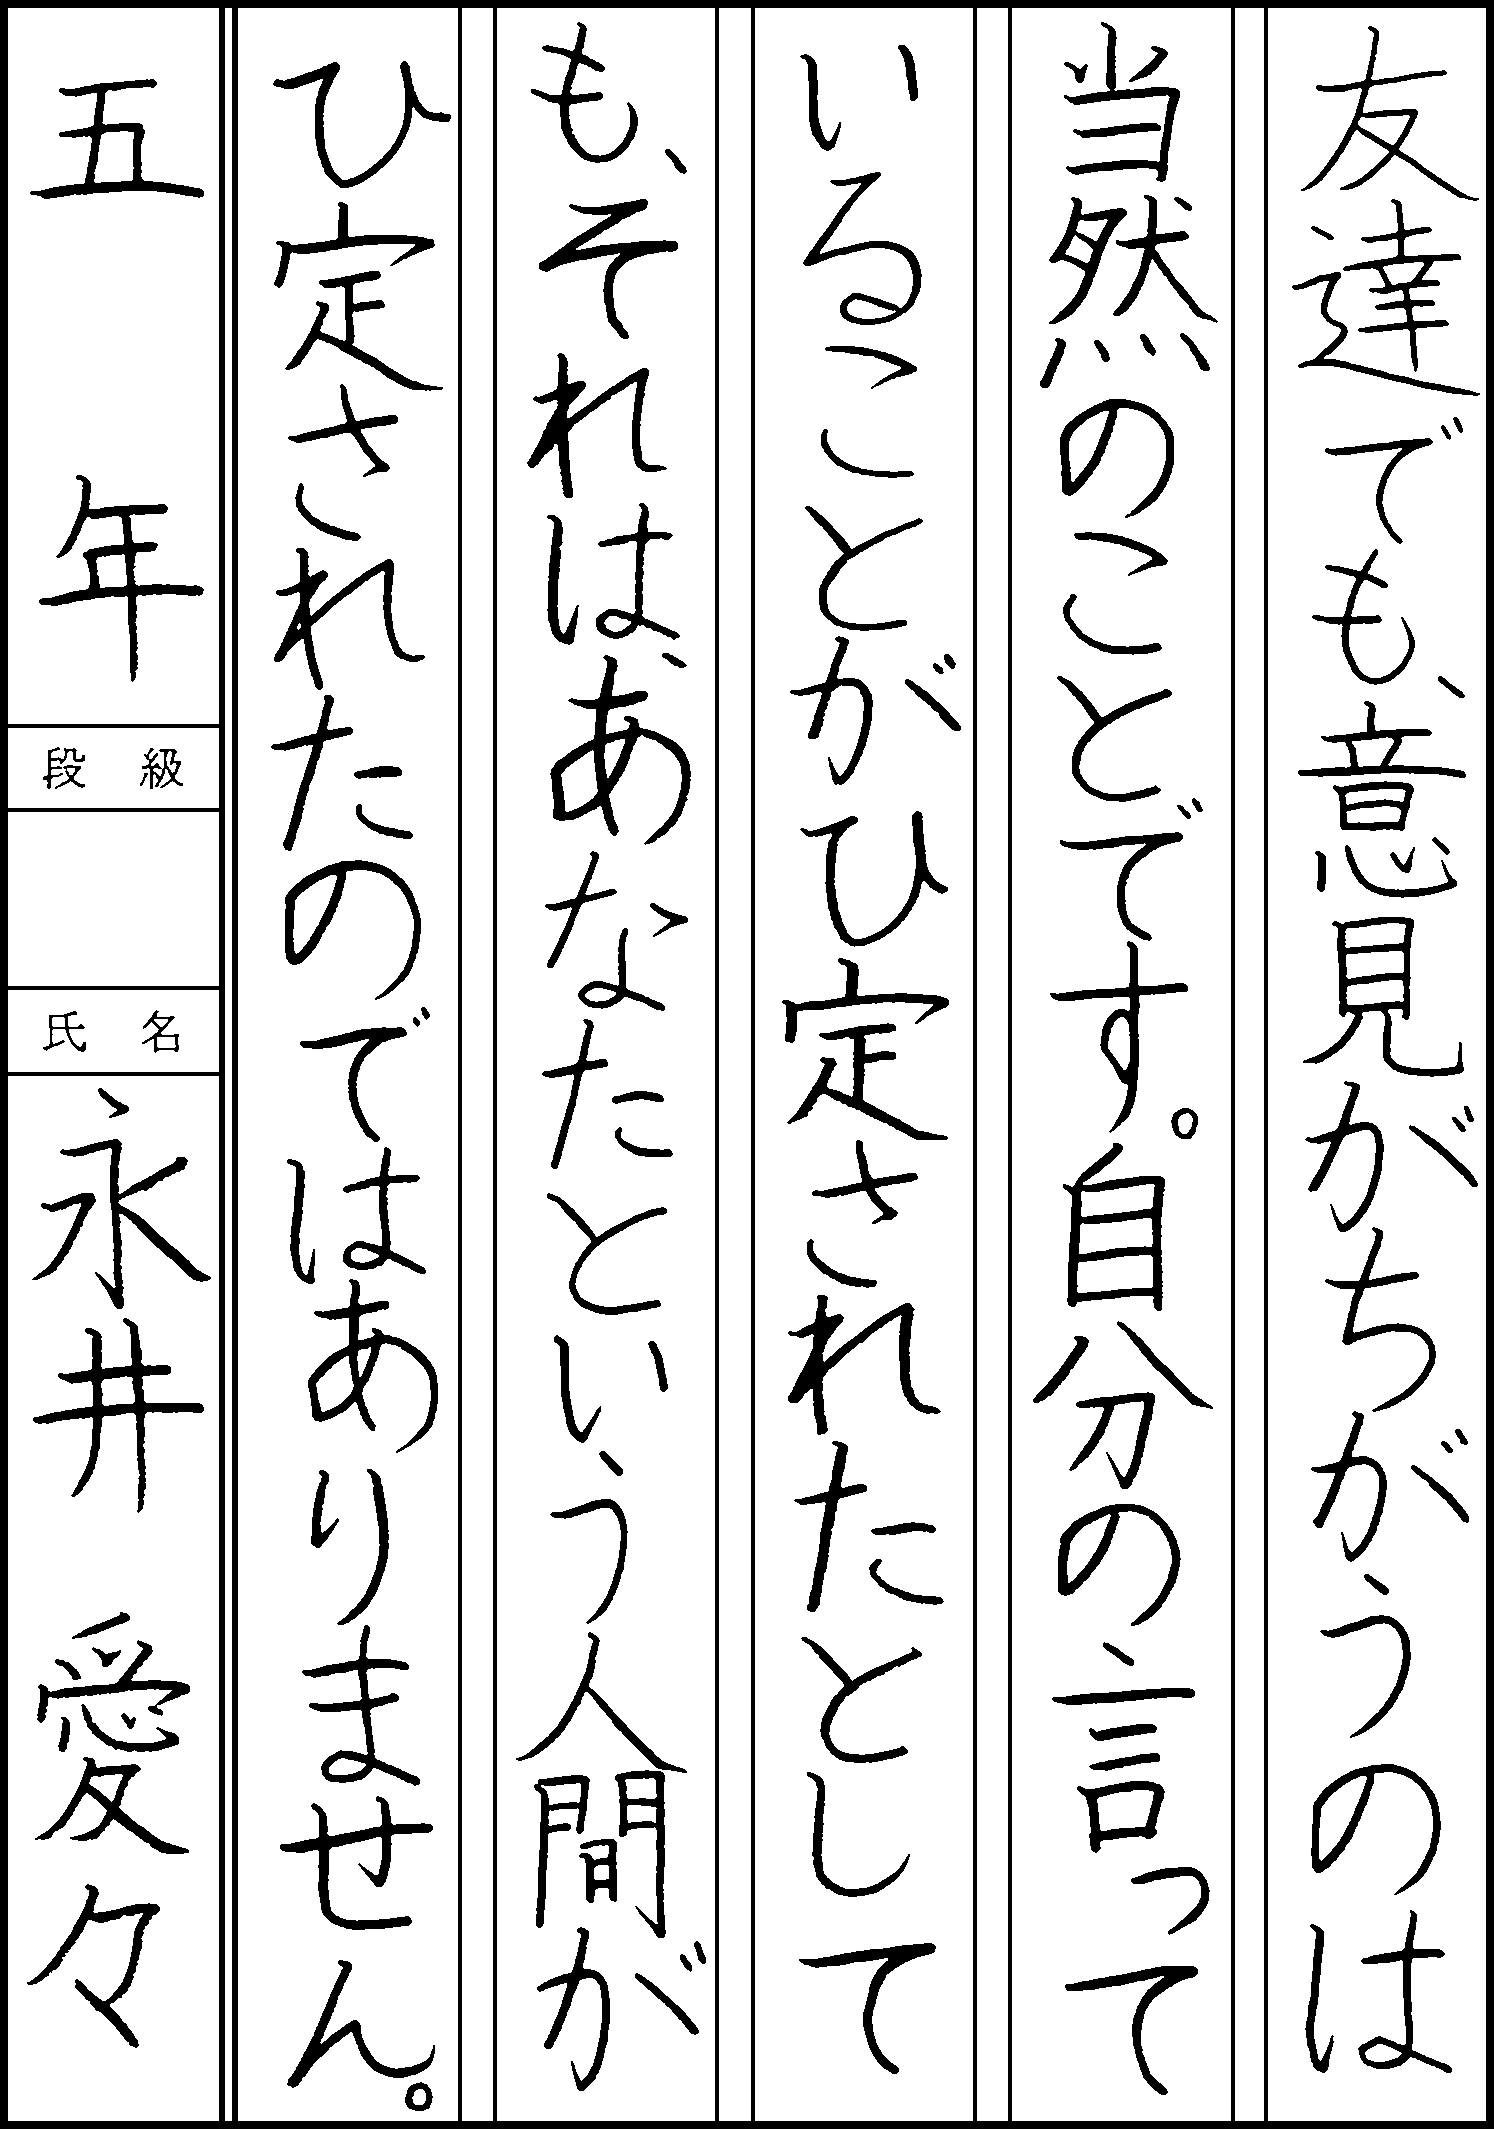 友達でも、意見がちがうのは
当然のことです。自分の言って
いることがひ定されたとして
も、それは、あなたという人間が
ひ定されたのではありません。
五年
段級
氏名
永井 愛々